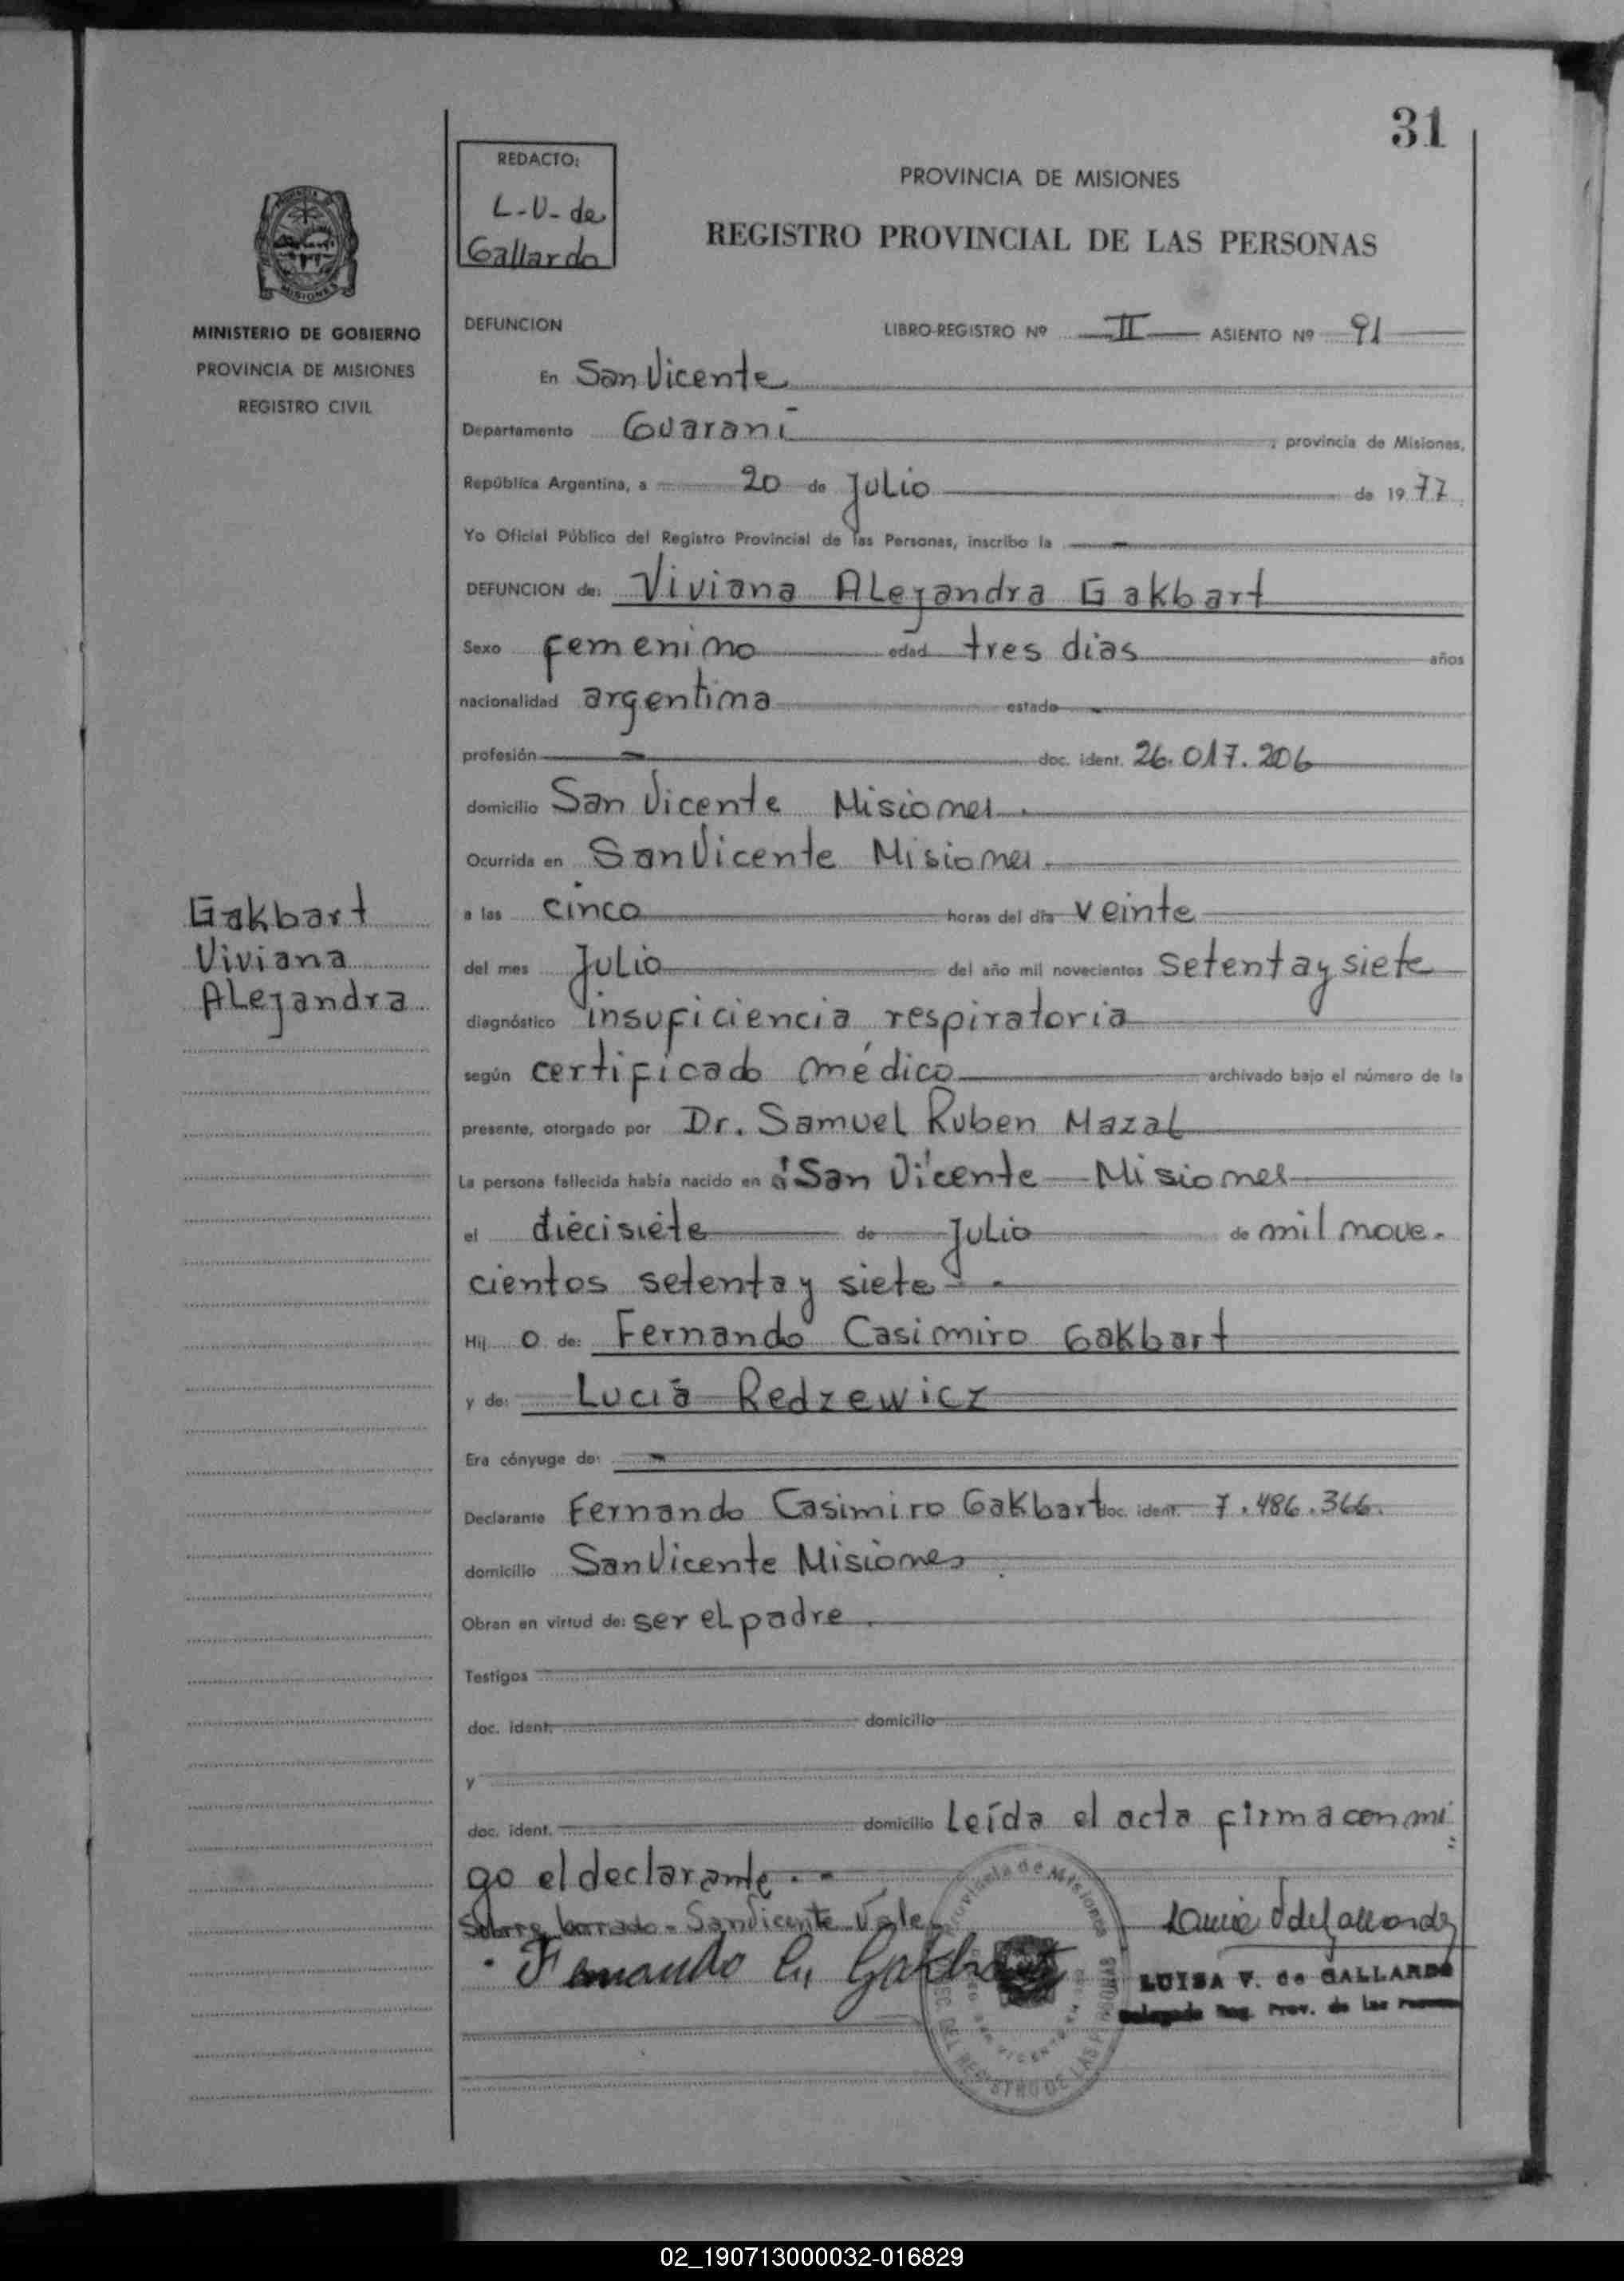 31
REDACTO:
L-V- de
Gallardo
PROVINCIA DE MISIONES
REGISTRO PROVINCIAL DE LAS PERSONAS
MISIONES
MINISTERIO DE GOBIERNO
PROVINCIA DE MISIONES
REGISTRO CIVIL
DEFUNCION LIBRO-REGISTRO Nº II ASIENTO Nº 91
En San Vicente
Departamento Guaraní, provincia de Misiones,
República Argentina, a 20 de Julio de 1977
Yo Oficial Público del Registro Provincial de las Personas, inscribo la -
DEFUNCION de: Viviana Alejandra Gakbart
Sexo femenino edad tres dias años
nacionalidad argentina estado -
profesión - doc. ident. 26.017.206
domicilio San Vicente Misiones.
Ocurrida en San Vicente Misiones.
a las cinco horas del día veinte
del mes Julio del año mil novecientos setenta y siete
diagnóstico insuficiencia respiratoria
según certificado médico archivado bajo el número de la
presente, otorgado por Dr. Samuel Ruben Mazal
La persona fallecida había nacido en San Vicente - Misiones
el diecisiete de Julio de mil nove-
cientos setenta y siete - -
Hij o de: Fernando Casimiro Gakbart
y de: Lucía Redzewicz
Era cónyuge de: -
Declarante Fernando Casimiro Gakbart doc. ident. 7.486.366.
domicilio San Vicente Misiones.
Obran en virtud de: ser el padre.
Testigos
doc. ident. domicilio
y
doc. ident. domicilio Leída el acta firma conmi
go el declarante. -
Sobre borrado - San Vicente Vale
Gakbart
Viviana
Alejandra
Fernando C. Gakbart
LUISA V. de GALLARDO
Delegada Reg. Prov. de las Personas
02_190713000032-016829